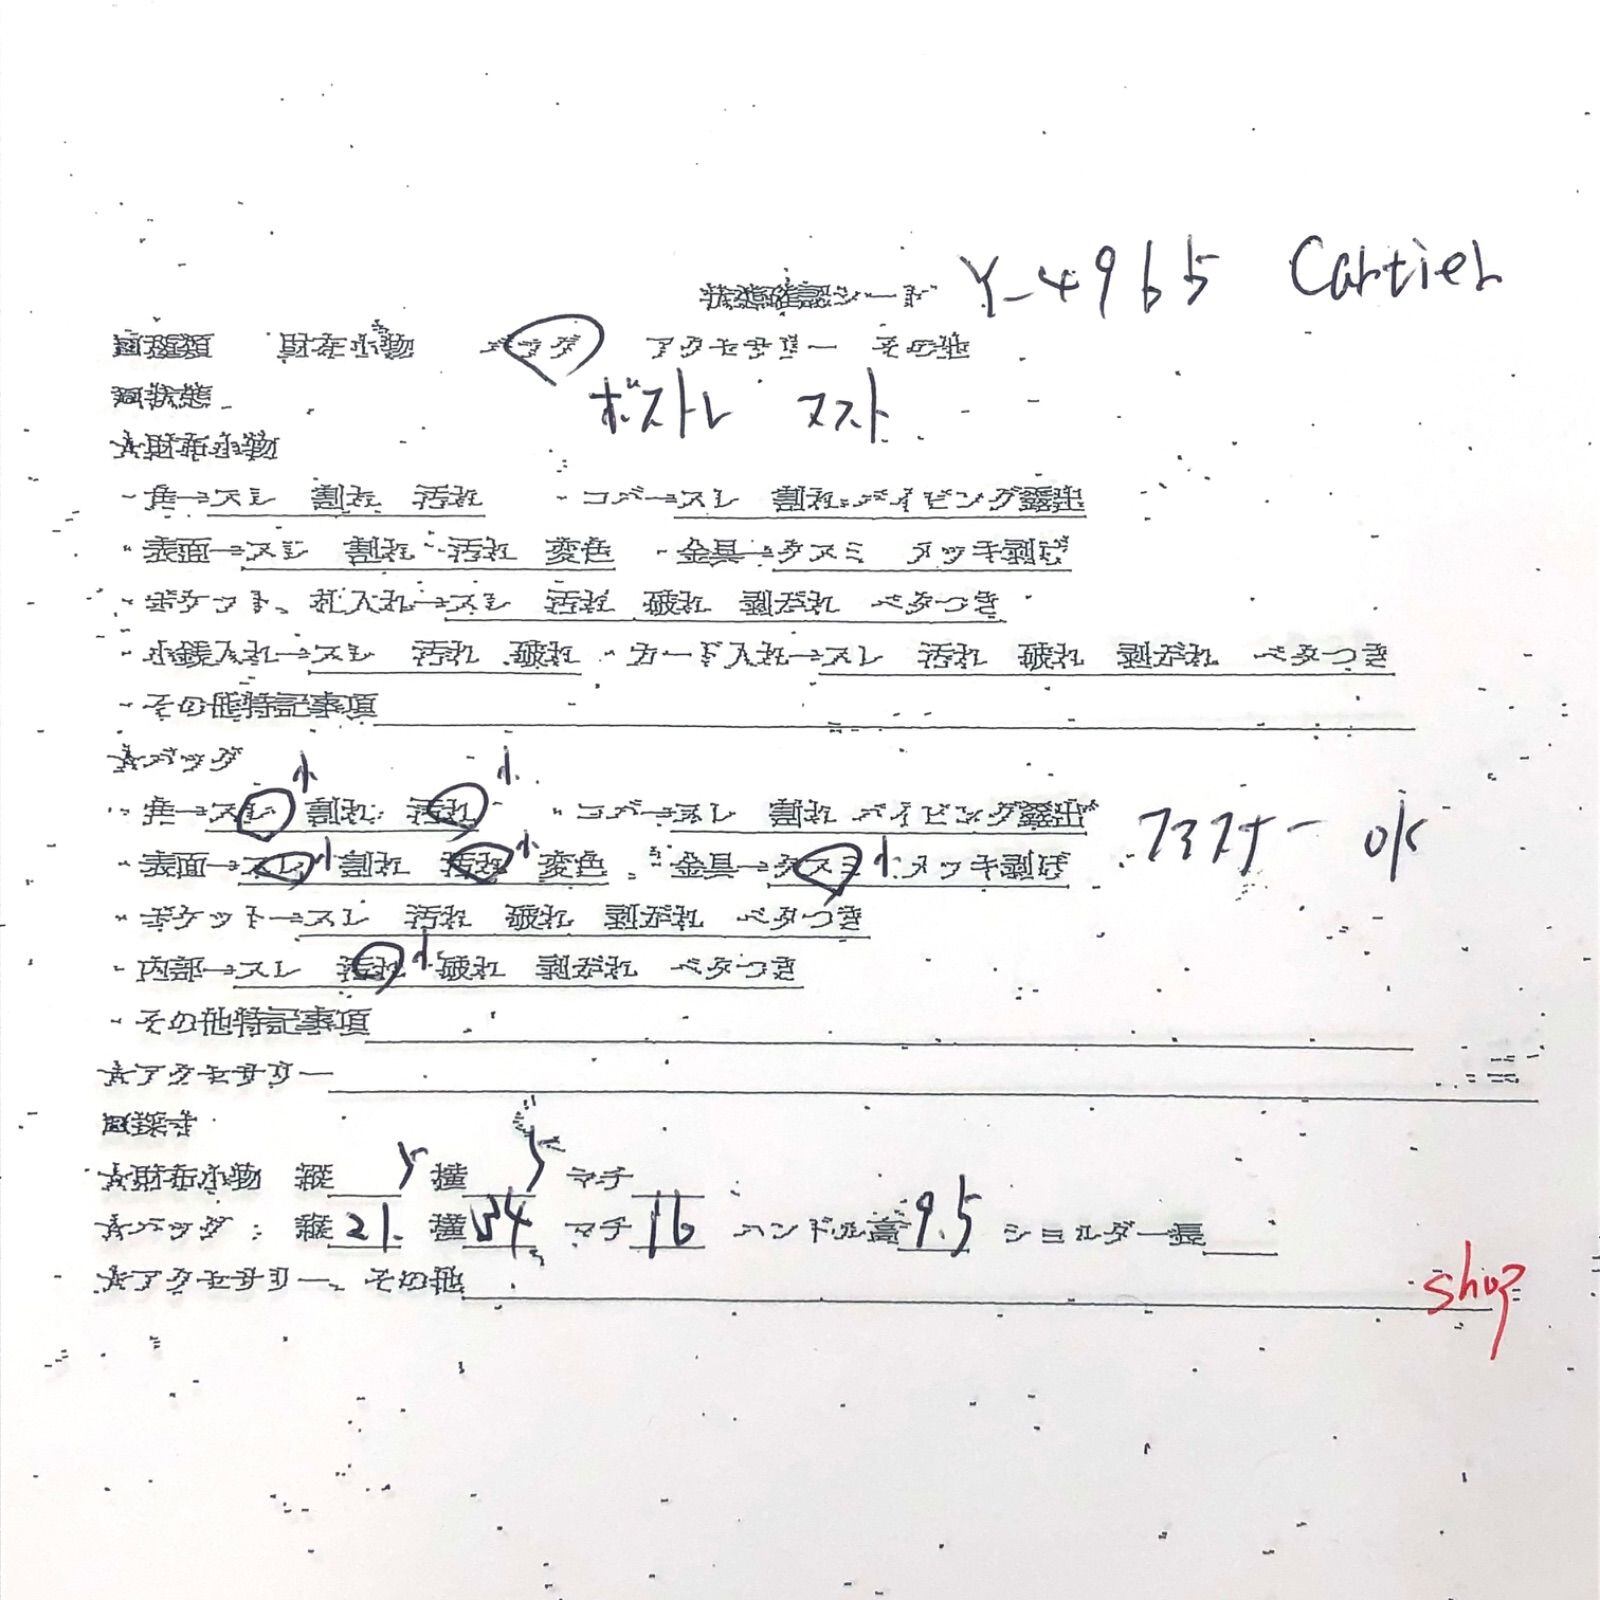 状態確認シート Y-4965 Cartier
■種類 財布小物 バッグ アクセサリー その他
■状態 ボストレ マスト
☆財布小物
・角→スレ 割れ 汚れ ・コバ→スレ 割れ パイピング露出
・表面→スレ 割れ 汚れ 変色 ・金具→クスミ メッキ剥げ
・ポケット、札入れ→スレ 汚れ 破れ 剥がれ ベタつき
・小銭入れ→スレ 汚れ 破れ ・カード入れ→スレ 汚れ 破れ 剥がれ ベタつき
・その他特記事項
☆バッグ 小 小
・角→スレ 割れ 汚れ ・コバ→スレ 割れ パイピング露出
・表面→スレ 小 割れ 汚れ 小 変色 ・金具→クスミ 小 メッキ剥げ ファスナー OK
・ポケット→スレ 汚れ 破れ 剥がれ ベタつき
・内部→スレ 汚れ 小 破れ 剥がれ ベタつき
・その他特記事項
☆アクセサリー
■採寸
☆財布小物 縦 横 マチ
☆バッグ: 縦21. 横34 マチ16 ハンドル高9.5 ショルダー長
☆アクセサリー、その他
shop